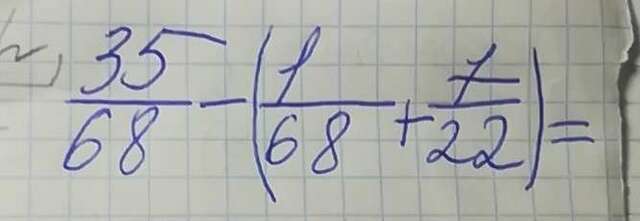 35/68 - (1/68 + 7/22) =